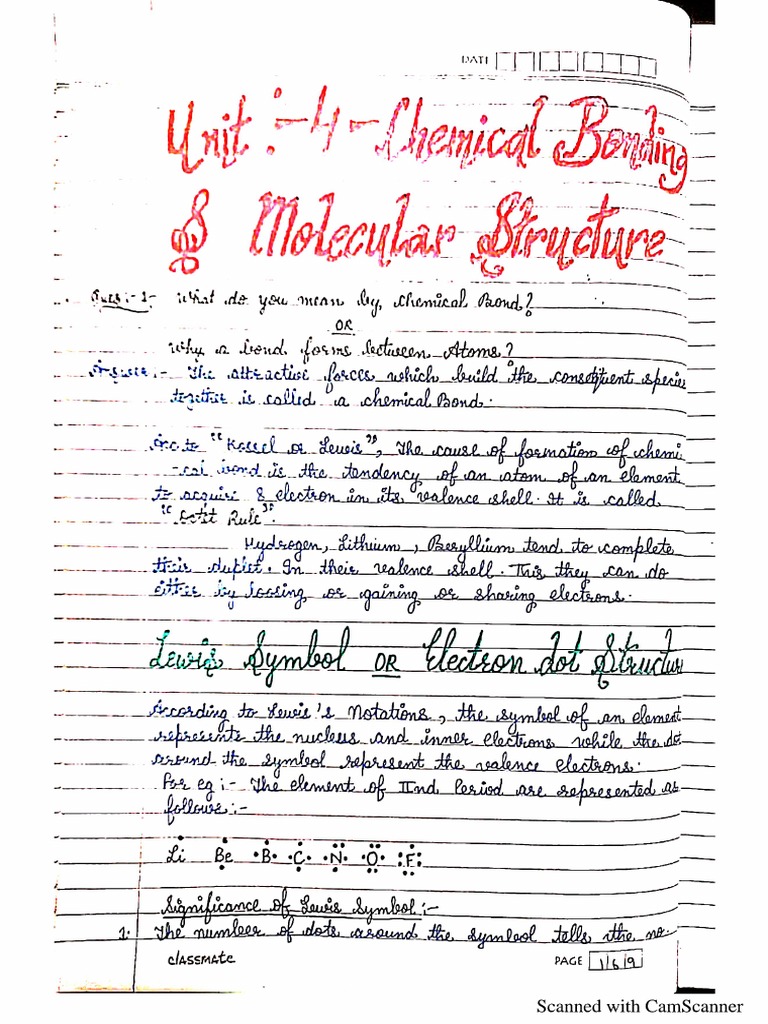 DATE
Unit :- 4 - Chemical Bonding
& Molecular Structure
Ques:- 1- What do you mean by, chemical Bond?
OR
Why a bond forms between Atoms?
Answer:- The attractive forces which build the consetiuent species
together is called a chemical Bond.
Acc to "Kossel or Lewis", The cause of formation of chemi
-cal bond is the tendency of an atom of an element
to acquire 8 electron in its valence shell. It is called
"Octet Rule".
Hydrogen, Lithium, Beryllium tend to complete
their duplet. In their valence shell. This they can do
either by loosing or gaining or sharing electrons.
Lewis Symbol OR Electron dot Structure
According to Lewis's Notations, the symbol of an element
represents the nucleus and inner electrons while the dot
around the symbol represent the valence electrons.
For eg :- The element of IInd Period are represented as
follows:-
Li Be B C N O F
Significance of Lewis Symbol:-
1. The number of dots around the symbol tells the no.
classmate
PAGE 1/6/9
Scanned with CamScanner